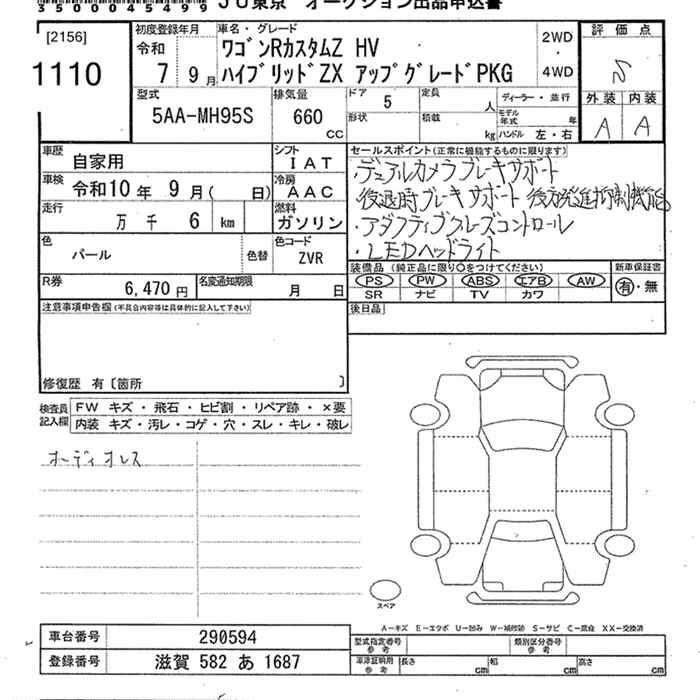 35000045499 JU東京 オークション出品申込書
[2156]
1110
初度登録年月
令和
7 9月
車名・グレード
ワゴンRカスタムZ HV
ハイブリッドZX アップグレードPKG
2WD
4WD
評価点
S
外装 内装
A A
型式
5AA-MH95S
排気量
660
CC
ドア 5
定員 人
形状
積載 kg
ディーラー・並行
モデル年式 年
ハンドル 左・右
車歴
自家用
シフト
IAT
車検
令和10年 9月( 日)
冷房
AAC
走行
万 千 6 km
燃料
ガソリン
色
パール
色替
色コード
ZVR
R券
6,470円
名変通知期限
月 日
セールスポイント(正常に機能するものに限ります)
・デュアルカメラブレーキサポート
後退時ブレーキサポート 後方発進抑制機能
・アダプティブクルーズコントロール
・LEDヘッドライト
装備品 (純正品に限り○をつけてください)
PS PW ABS エアB AW
SR ナビ TV カワ
新車保証書
有・無
後日品
注意事項申告欄(不具合内容等は具体的に記入して下さい)
修復歴 有〔箇所 〕
検査員
記入欄
FW キズ・飛石・ヒビ割・リペア跡・×要
内装 キズ・汚レ・コゲ・穴・スレ・キレ・破レ
オーディオレス
スペア
A-キズ E-エクボ U-凹み W-補修跡 S-サビ C-腐食 XX-交換済
車台番号 290594
登録番号 滋賀 582 あ 1687
型式指定番号
参考
類別区分番号
参考
車庫証明用
参考
長さ cm
幅 cm
高さ cm